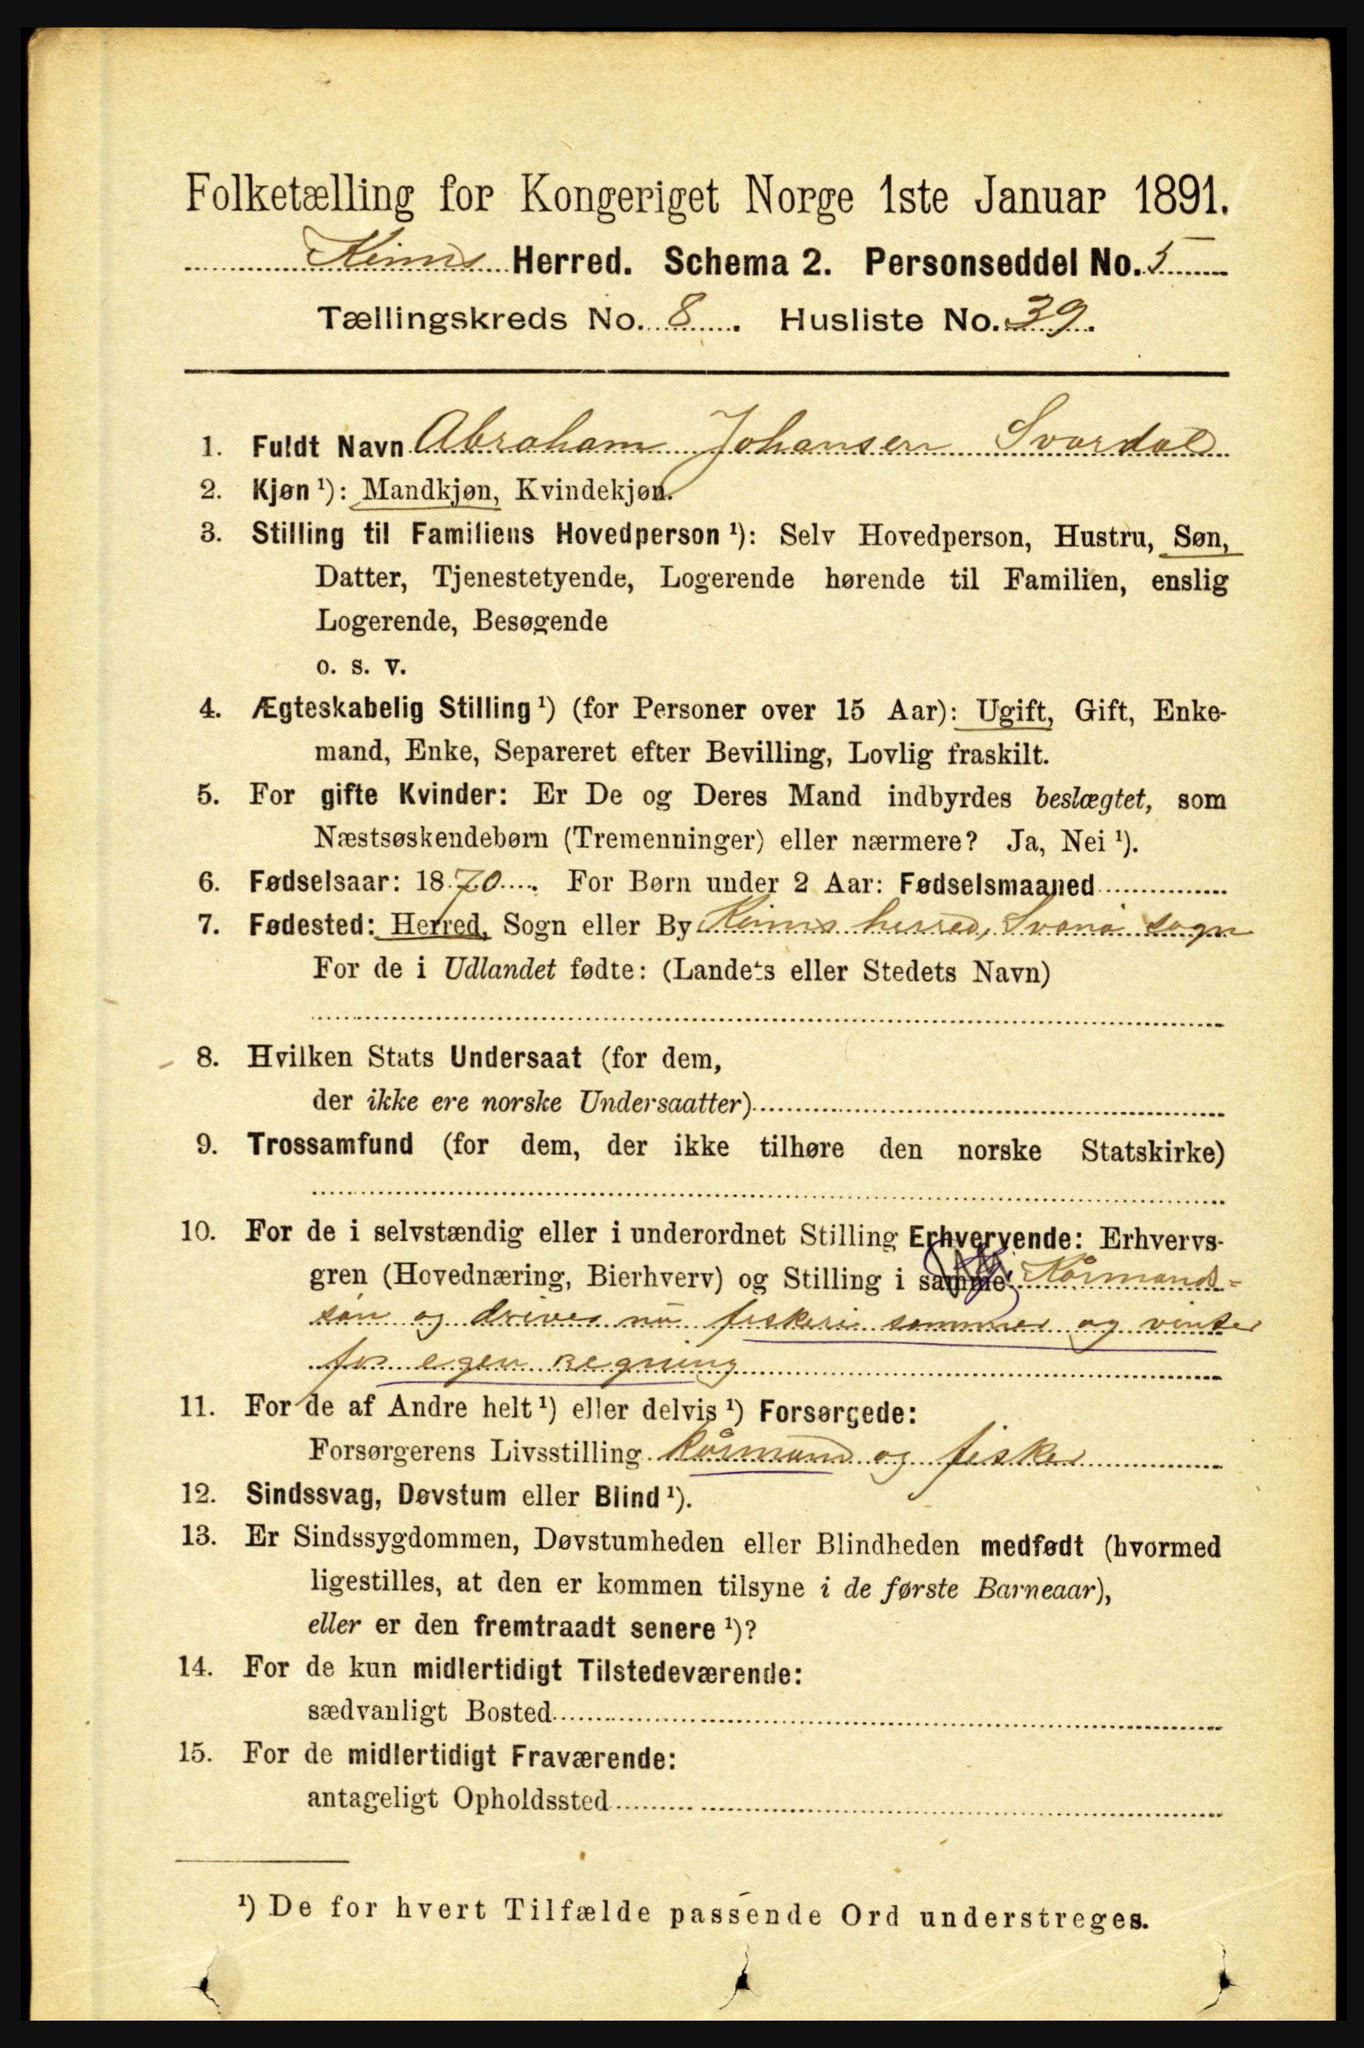 Folketælling for Kongeriget Norge 1ste Januar 1891.
Kinns Herred. Schema 2. Personseddel No. 5
Tællingskreds No. 8. Husliste No. 39.
1. Fuldt Navn Abraham Johansen Svardal
2. Kjøn ¹): Mandkjøn, Kvindekjøn.
3. Stilling til Familiens Hovedperson ¹): Selv Hovedperson, Hustru, Søn,
Datter, Tjenestetyende, Logerende hørende til Familien, enslig
Logerende, Besøgende
o. s. v.
4. Ægteskabelig Stilling ¹) (for Personer over 15 Aar): Ugift, Gift, Enke-
mand, Enke, Separeret efter Bevilling, Lovlig fraskilt.
5. For gifte Kvinder: Er De og Deres Mand indbyrdes beslægtet, som
Næstsøskendebørn (Tremenninger) eller nærmere? Ja, Nei ¹).
6. Fødselsaar: 1870. For Børn under 2 Aar: Fødselsmaaned
7. Fødested: Herred, Sogn eller By Kinns herred, Svanø sogn
For de i Udlandet fødte: (Landets eller Stedets Navn)
8. Hvilken Stats Undersaat (for dem,
der ikke ere norske Undersaatter)
9. Trossamfund (for dem, der ikke tilhøre den norske Statskirke)
10. For de i selvstændig eller i underordnet Stilling Erhvervende: Erhvervs-
gren (Hovednæring, Bierhverv) og Stilling i samme Kårmands-
søn og driver nu fiskeri sommer og vinter
for egen regning
11. For de af Andre helt ¹) eller delvis ¹) Forsørgede:
Forsørgerens Livsstilling Kårmand og fisker
12. Sindssvag, Døvstum eller Blind ¹).
13. Er Sindssygdommen, Døvstumheden eller Blindheden medfødt (hvormed
ligestilles, at den er kommen tilsyne i de første Barneaar),
eller er den fremtraadt senere ¹)?
14. For de kun midlertidigt Tilstedeværende:
sædvanligt Bosted
15. For de midlertidigt Fraværende:
antageligt Opholdssted
¹) De for hvert Tilfælde passende Ord understreges.